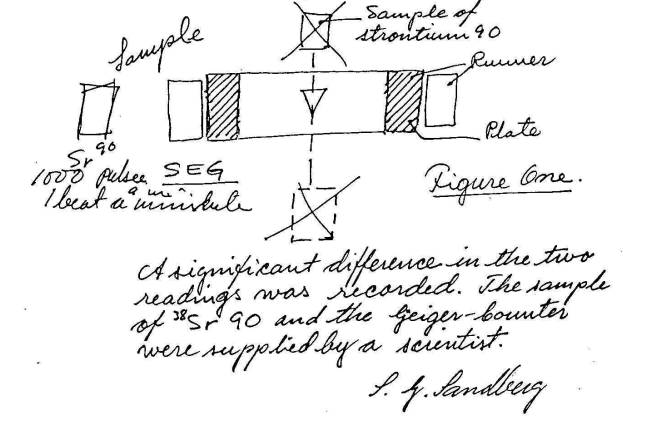 Sample
Sample of
strontium 90
Runner
Plate
Sr 90
1000 pulse
1 beat a minute
SEG
Figure One.
A significant difference in the two
readings was recorded. The sample
of ³⁸Sr 90 and the Geiger-Counter
were supplied by a scientist.
S. G. Sandberg